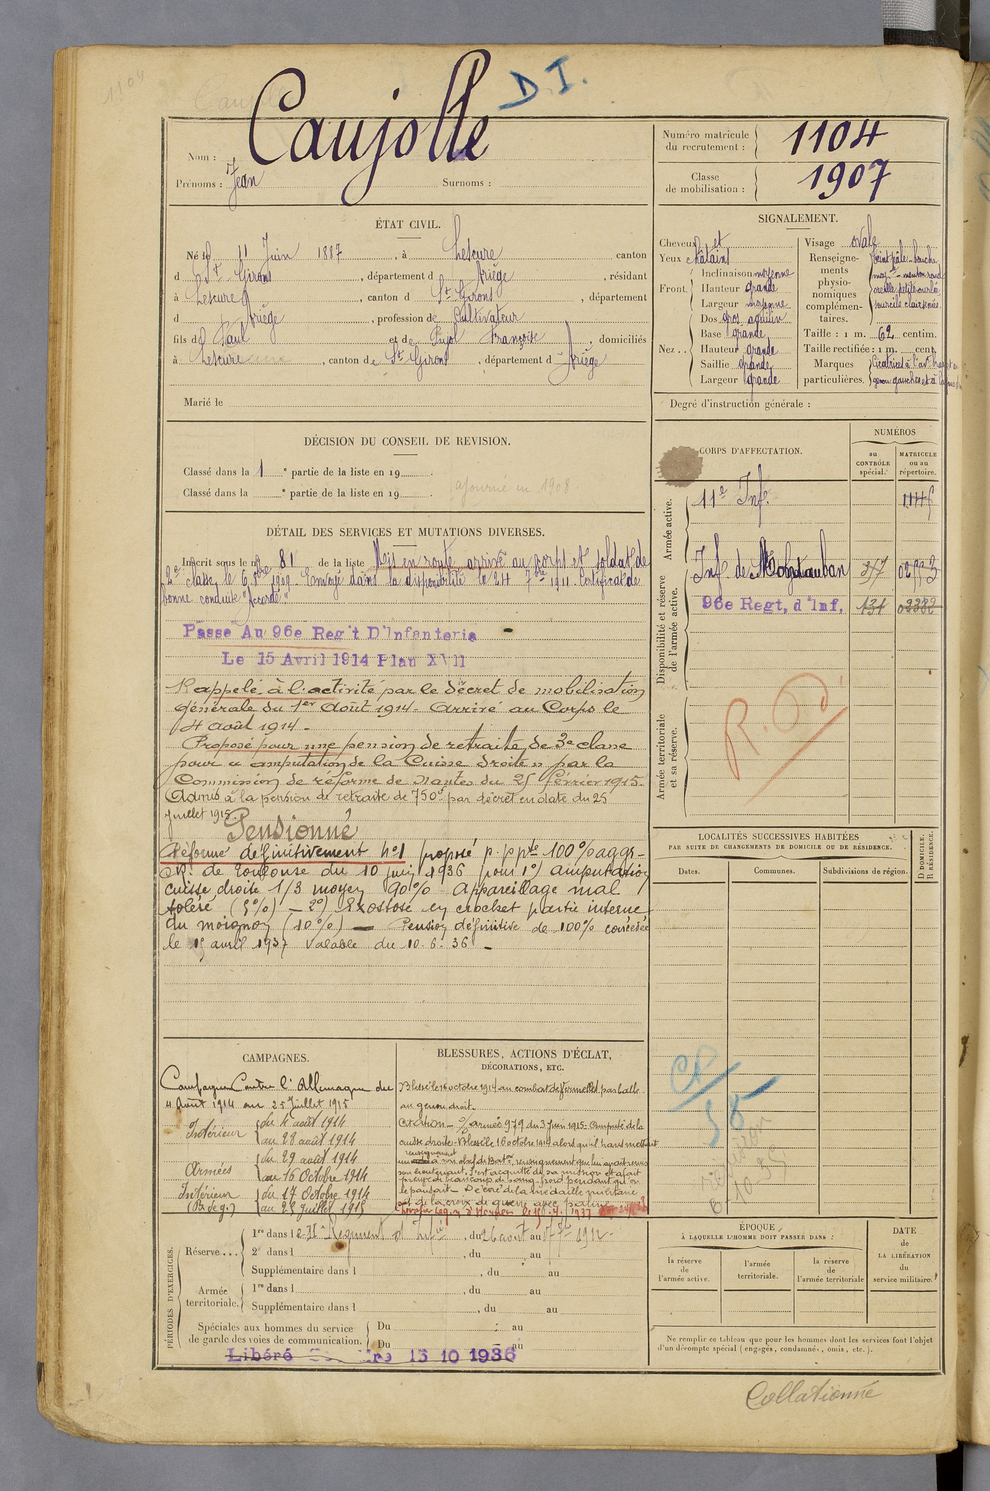 D. I.
Nom : Caujolle
Prénoms : Jean Surnoms :
Numéro matricule du recrutement : 1104
Classe de mobilisation : 1907
ÉTAT CIVIL.
Né le 11 Juin 1887, à Lescure canton
d St Girons, département d Ariège, résidant
à Lescure, canton d St Girons, département
d Ariège, profession de Cultivateur
fils de Paul et de Pujol Françoise, domiciliés
à Lescure, canton de St Girons, département d Ariège
Marié le
SIGNALEMENT.
Cheveux et
Yeux châtains
Front. Inclinaison moyenne
Hauteur grande
Largeur moyenne
Nez... Dos gros aquilin
Base grande
Hauteur grande
Saillie grande
Largeur grande
Visage ovale
Renseignements physionomiques complémentaires.
Taille : 1 m. 62 centim.
Taille rectifiée : 1 m. cent.
Marques particulières.
Degré d'instruction générale :
DÉCISION DU CONSEIL DE REVISION.
Classé dans la 1e partie de la liste en 19
Classé dans la e partie de la liste en 19
ajourné en 1908
CORPS D'AFFECTATION.
NUMÉROS
au CONTRÔLE spécial.
MATRICULE ou au répertoire.
Armée active.
11e Inf.
Disponibilité et réserve de l'armée active.
Inf. de Montauban
96e Regt, d'Inf. 131 02382
Armée territoriale et sa réserve.
R. D.
DÉTAIL DES SERVICES ET MUTATIONS DIVERSES.
Inscrit sous le no 81 de la liste Mis en route arrivé au corps et soldat de
2e classe, le 6 8bre 1908. Envoyé dans la disponibilité le 24 7bre 1911. Certificat de
bonne conduite "Accordé"
Passe Au 96e Reg't D'Infanterie
Le 15 Avril 1914 Plan XVII
Rappelé à l'activité par le décret de mobilisation
générale du 1er Août 1914. Arrivé au Corps le
4 août 1914.
Proposé pour une pension de retraite de 3e classe
pour "amputation de la Cuisse droite" par la
Commission de réforme de Nantes du 25 février 1915.
Admis à la pension de retraite de 750f par décret en date du 25
juillet 1915.
Pensionné
Réformé définitivement No 1 proposé p. p pte 100% aggr-
de Toulouse du 10 juin 1936 pour 1°) amputation
cuisse droite 1/3 moyen 90% Appareillage mal
toléré (5%) — 2°) Exostose en crochet partie interne
du moignon (10%) — Pension définitive de 100% concédée
le 15 avril 1937 valable du 10.6.36 —
LOCALITÉS SUCCESSIVES HABITÉES
PAR SUITE DE CHANGEMENTS DE DOMICILE OU DE RÉSIDENCE.
Dates.
Communes.
Subdivisions de région.
D DOMICILE. R RÉSIDENCE.
CAMPAGNES.
Campagne Contre l'Allemagne du
4 Août 1914 au 25 Juillet 1915
Intérieur du 4 août 1914
au 28 août 1914
Armées du 29 août 1914
au 16 Octobre 1914
Intérieur du 17 Octobre 1914
(Bl. de g.) au 25 Juillet 1915
BLESSURES, ACTIONS D'ÉCLAT,
DÉCORATIONS, ETC.
Blessé le 16 octobre 1914 au combat de Vermelles par balle
au genou droit.
Citation - O/ armée 979 du 3 Juin 1915 - Amputé de la
cuisse droite - Blessé le 16 octobre 1914 alors qu'il transmettait
un renseignement à son chef de Baton, renseignement que lui avait remis
son lieutenant. S'est acquitté de sa mission et a fait
preuve de beaucoup de sang-froid pendant qu'on
le pansait - Décoré de la médaille militaire
et de la croix de guerre avec palme
PÉRIODES D'EXERCICES.
Réserve... 1re dans le Régiment d'Infie, du 26 août au 1912.
2e dans l , du au
Supplémentaire dans l , du au
Armée territoriale. 1re dans l , du au
Supplémentaire dans l , du au
Spéciales aux hommes du service de garde des voies de communication. Du au
Du au
Libéré 15 10 1936
ÉPOQUE
À LAQUELLE L'HOMME DOIT PASSER DANS :
la réserve de l'armée active.
l'armée territoriale.
la réserve de l'armée territoriale
DATE de LA LIBÉRATION du service militaire.
Ne remplir ce tableau que pour les hommes dont les services font l'objet
d'un décompte spécial (engagés, condamnés, omis, etc.).
Collationné